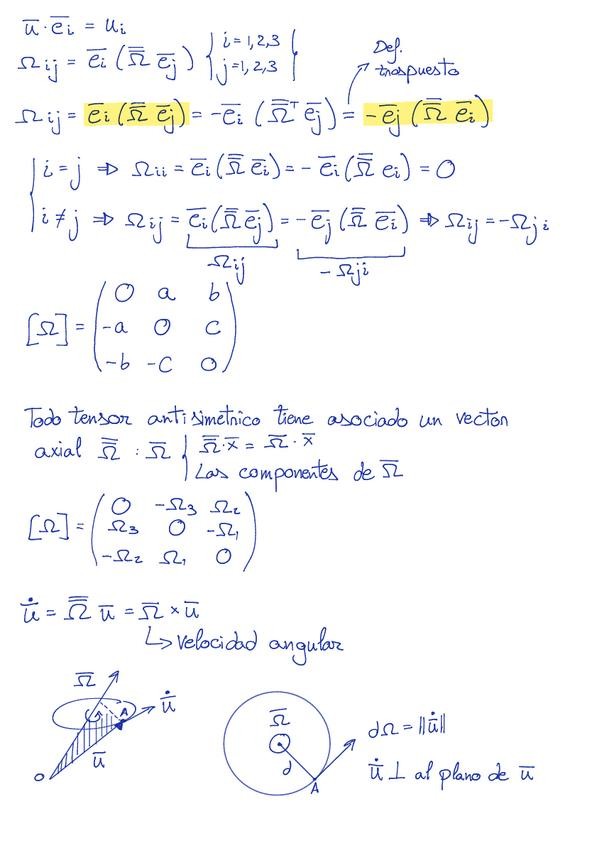 u̅ · e̅i = ui
Ωij = e̅i (Ω̿ e̅j) { i = 1,2,3
j = 1,2,3
Def.
traspuesto
Ωij = e̅i (Ω̿ e̅j) = -e̅i (Ω̿ᵀ e̅j) = -e̅j (Ω̿ e̅i)
i = j ⇒ Ωii = e̅i (Ω̿ e̅i) = -e̅i (Ω̿ ei) = 0
i ≠ j ⇒ Ωij = e̅i (Ω̿ e̅j) = -e̅j (Ω̿ e̅i) ⇒ Ωij = -Ωji
Ωij -Ωji
0 a b
[Ω] = -a 0 c
-b -c 0
Todo tensor antisimetrico tiene asociado un vector
axial Ω̿ : Ω̅ { Ω̿·x̅ = Ω̅·x̅
Las componentes de Ω̅
0 -Ω3 Ω2
[Ω] = Ω3 0 -Ω1
-Ω2 Ω1 0
u̅̇ = Ω̿ u̅ = Ω̅ × u̅
↳ velocidad angular
Ω̅ A u̅̇
u̅
O
Ω̅
d
A
dΩ = ||u̅̇||
u̅̇ ⊥ al plano de u̅